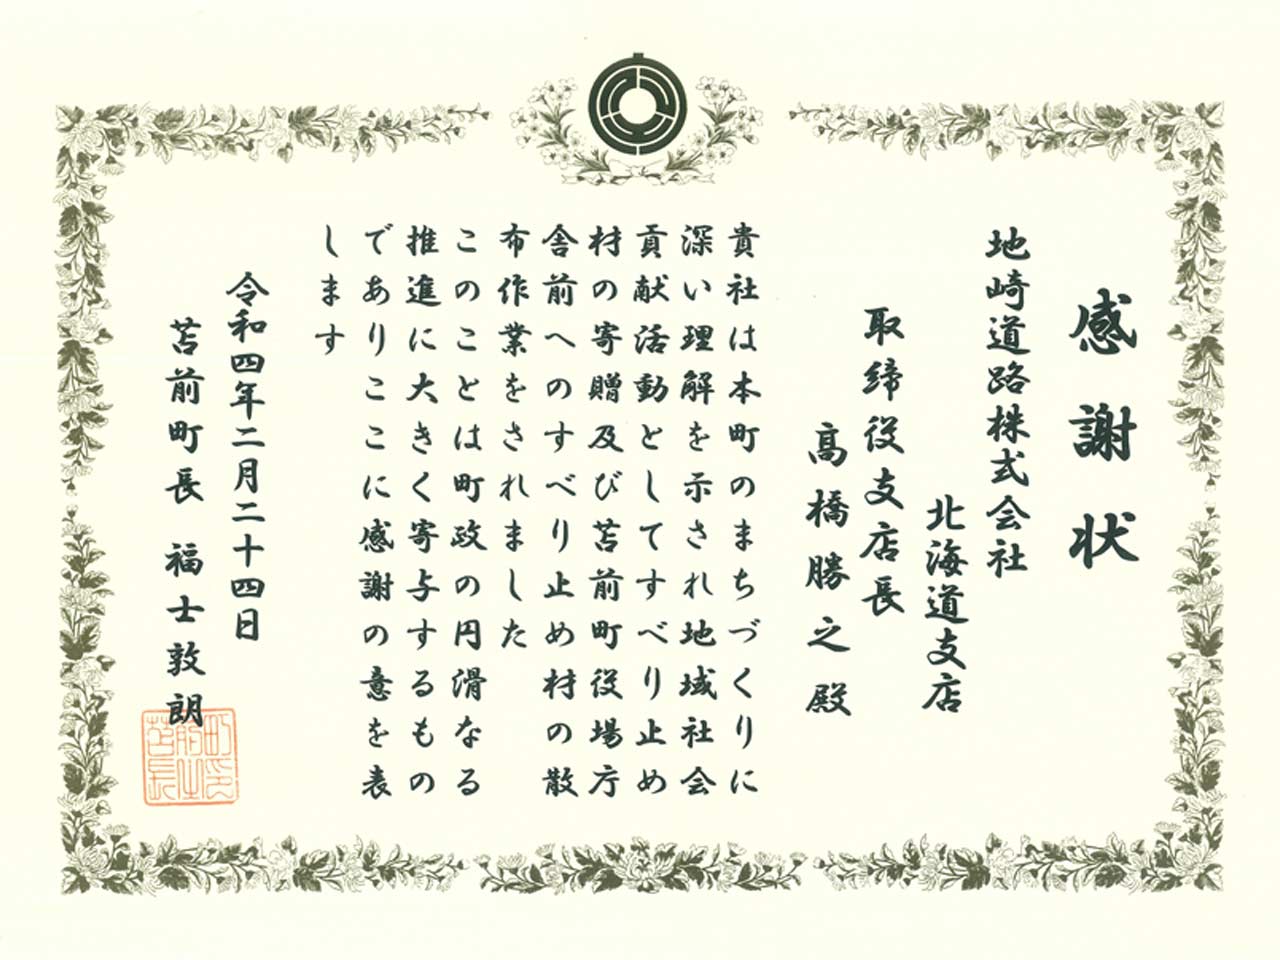 感謝状
地崎道路株式会社
北海道支店
取締役支店長
髙橋勝之殿
貴社は本町のまちづくりに
深い理解を示され地域社会
貢献活動としてすべり止め
材の寄贈及び苫前町役場庁
舎前へのすべり止め材の散
布作業をされました
このことは町政の円滑なる
推進に大きく寄与するもの
でありここに感謝の意を表
します
令和四年二月二十四日
苫前町長 福士敦朗
苫前町長之印